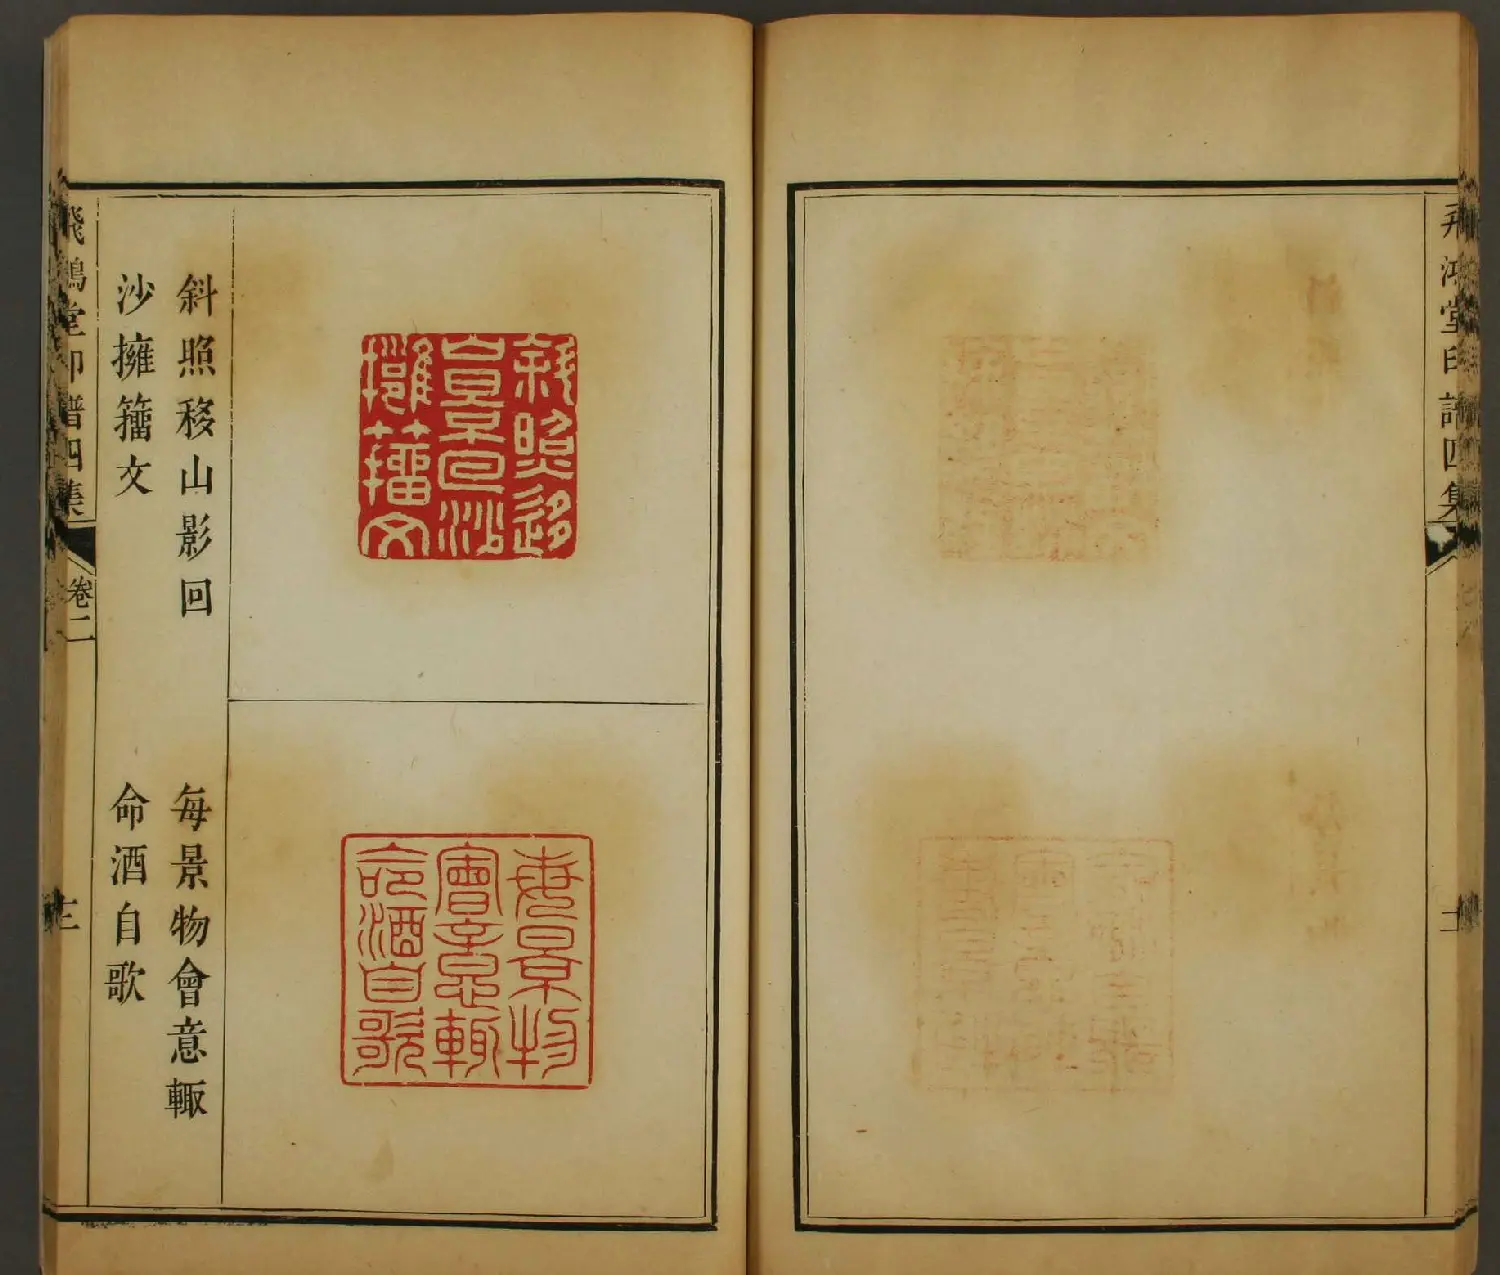 飛鴻堂印譜四集
斜照移山影回
沙擁籀文
斜照移山影回沙擁籀文
每景物會意輙
命酒自歌
每景物會意輒命酒自歌
飛鴻堂印譜四集
卷二
三